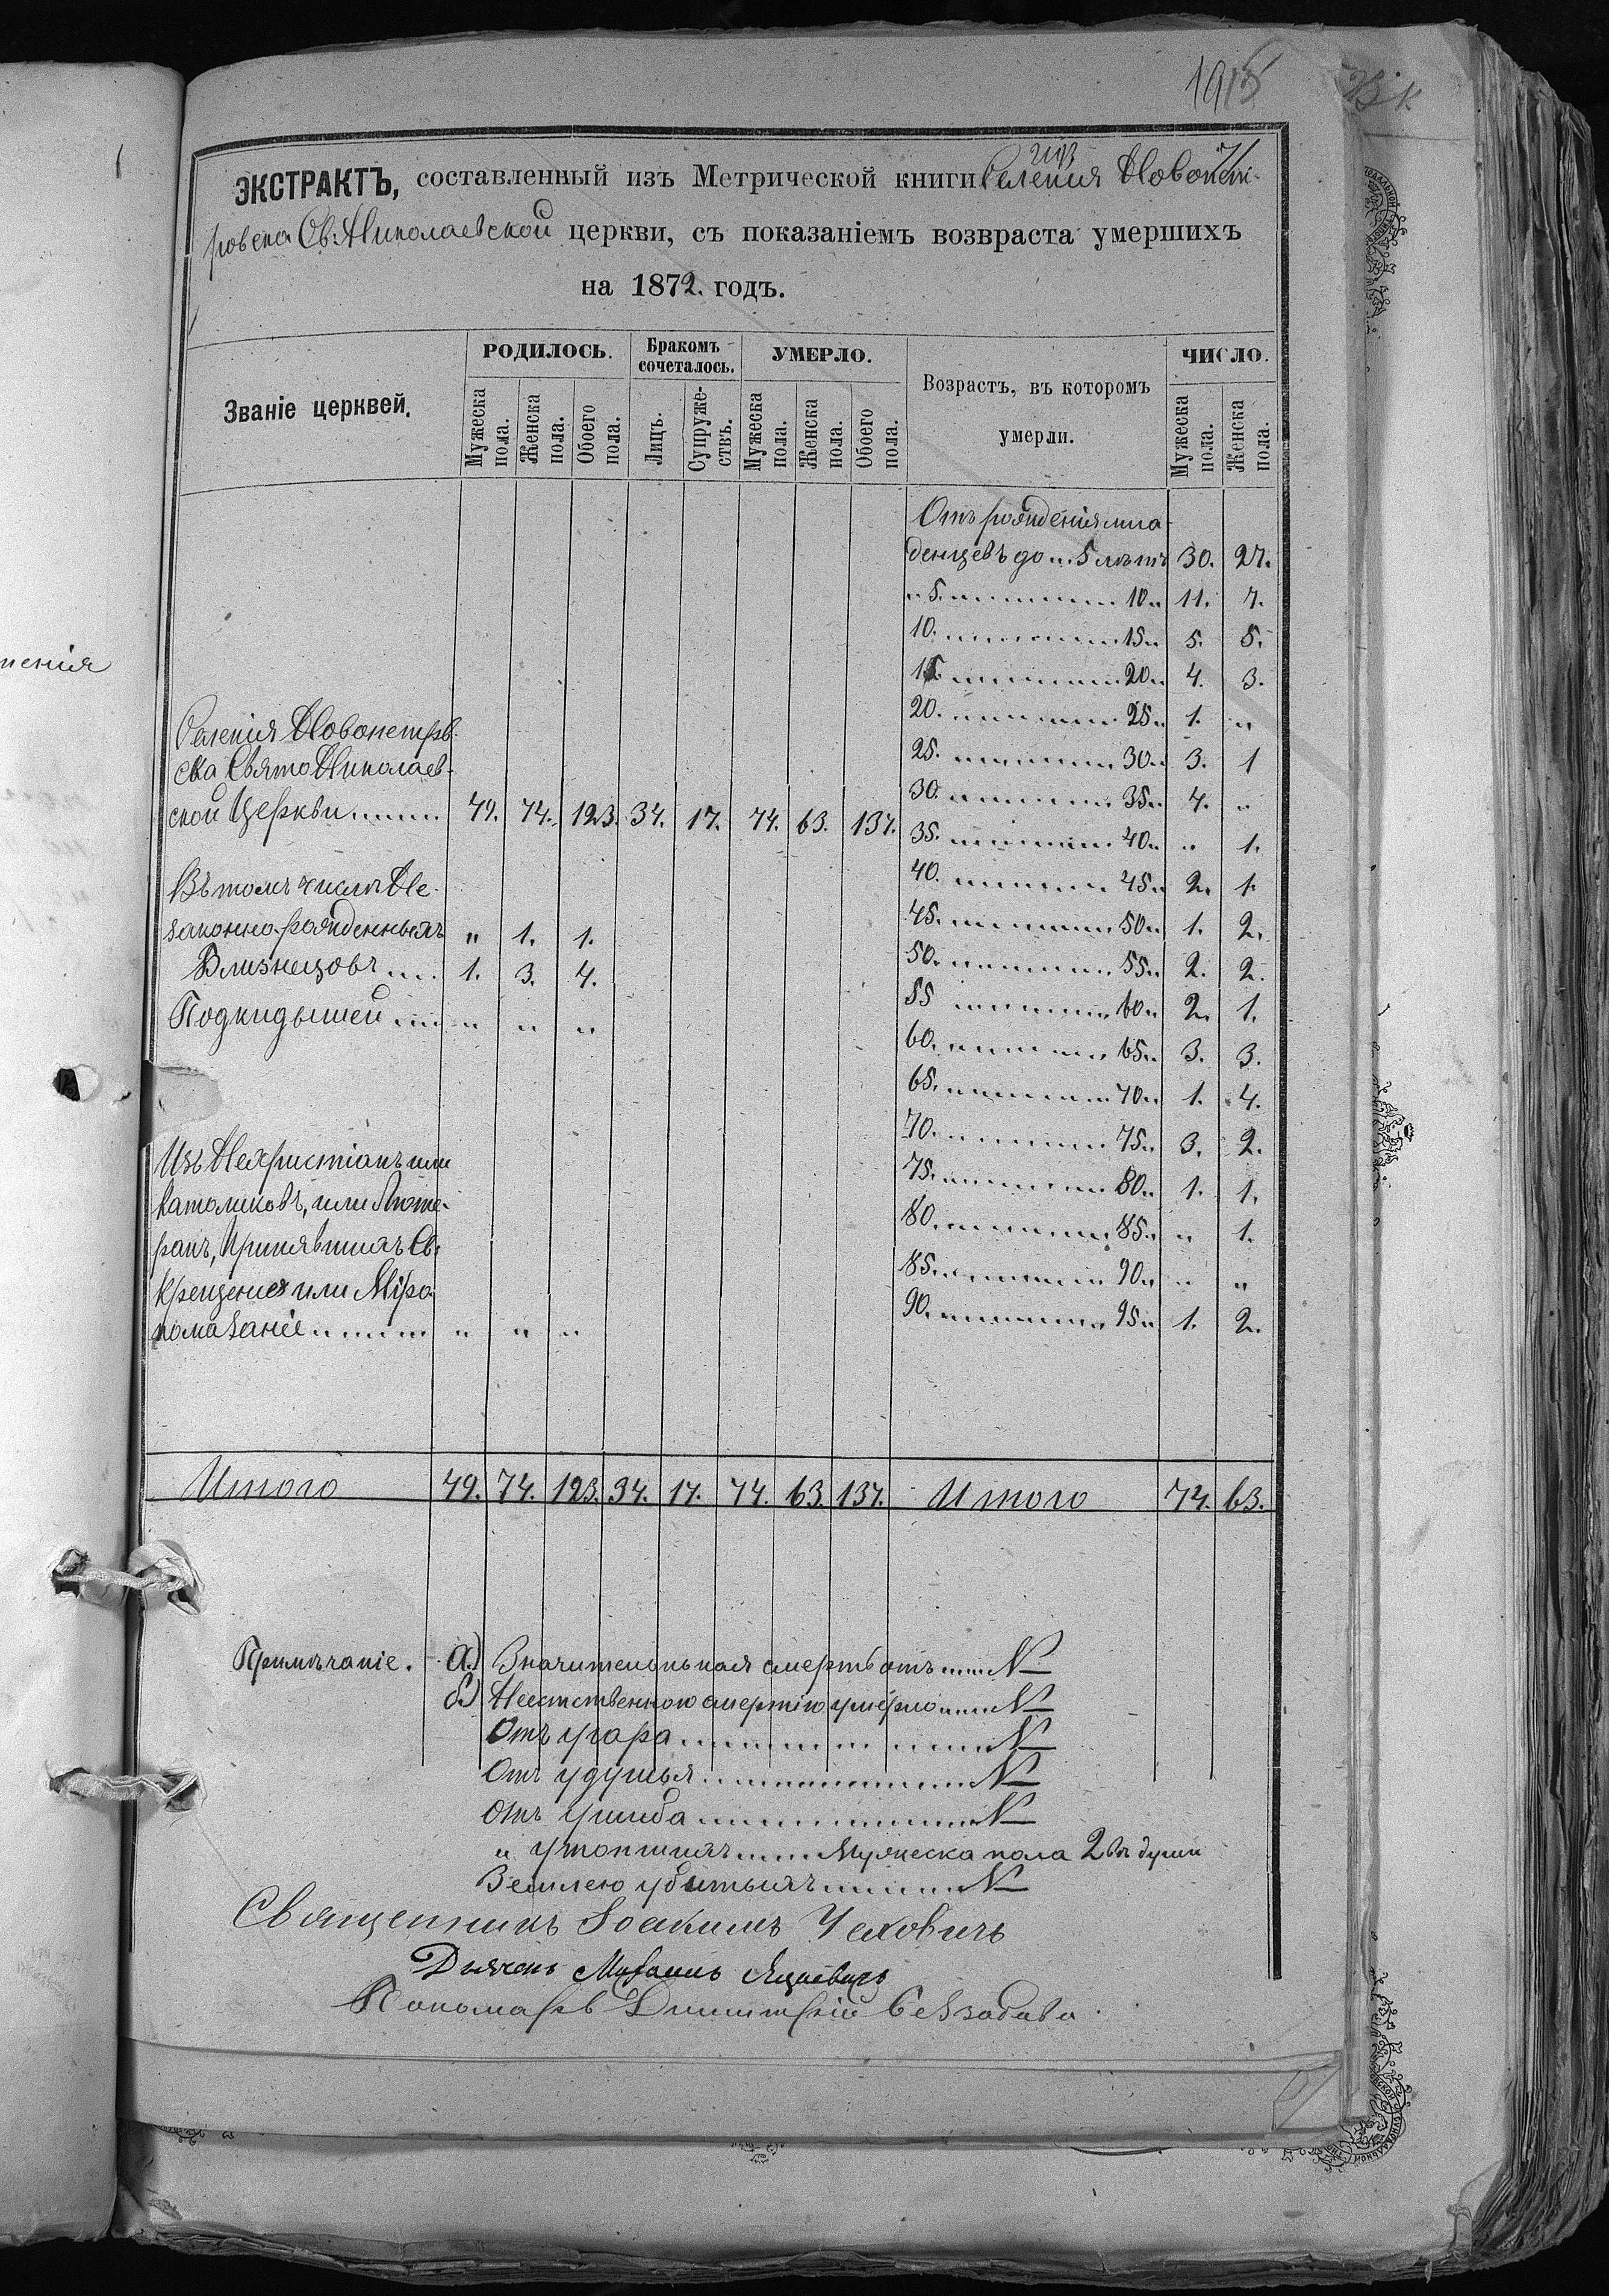 1915
ЭКСТРАКТЪ, составленный изъ Метрической книги Селенія Новопет-
ровска Св: Николаевской церкви, съ показаніемъ возвраста умершихъ
на 1872. годъ.
Званіе церквей. РОДИЛОСЬ. Бракомъ сочеталось. УМЕРЛО. Возрастъ, въ которомъ умерли. ЧИСЛО.
Мужеска пола. Женска пола. Обоего пола. Лицъ. Супружествъ. Мужеска пола. Женска пола. Обоего пола. Мужеска пола. Женска пола.
Отъ рожденія мла-
денцевъ до „ 5 лѣтъ 30. 27.
„ 5. „ 10 „ 11. 7.
10. „ 15 „ 5. 5.
15. „ 20 „ 4. 3.
20. „ 25 „ 1. „
25. „ 30 „ 3. 1
30. „ 35 „ 4. „
35. „ 40 „ „ 1.
40. „ 45 „ 2. 1.
45. „ 50 „ 1. 2.
50. „ 55 „ 2. 2.
55 „ 60 „ 2. 1.
60. „ 65 „ 3. 3.
65. „ 70 „ 1. 4.
70. „ 75 „ 3. 2.
75. „ 80 „ 1. 1.
80. „ 85 „ „ 1.
85. „ 90 „ „ „
90. „ 95 „ 1. 2.
Селенія Новопетров-
ска Свято Николаев-
ской Церкви 49. 74. 123. 34. 17. 74. 63. 137.
Въ томъ числѣ Не-
законно-рожденныхъ „ 1. 1.
Близнецовъ 1. 3. 4.
Подкидышей „ „ „
Изъ Нехристіанъ или
Католиковъ, или Люте-
ранъ, Принявшихъ Св.
Крещеніе или Мѵро-
помазаніе „ „ „
Итого 49. 74. 123. 34. 17. 74. 63. 137. Итого 74. 63.
Примѣчаніе. а.) Значительнная смерть отъ N
б.) Неестственною смертію умерло N
Отъ угара N
Отъ удушья N
Отъ ушиба N
„ утопшихъ Мужеска пола 2 въ души
Землею убитыхъ N
Священникъ Іоакимъ Чеховичъ
Дьячекъ Михаилъ Яцкевичъ
Пономарь Димитрій Беззабава